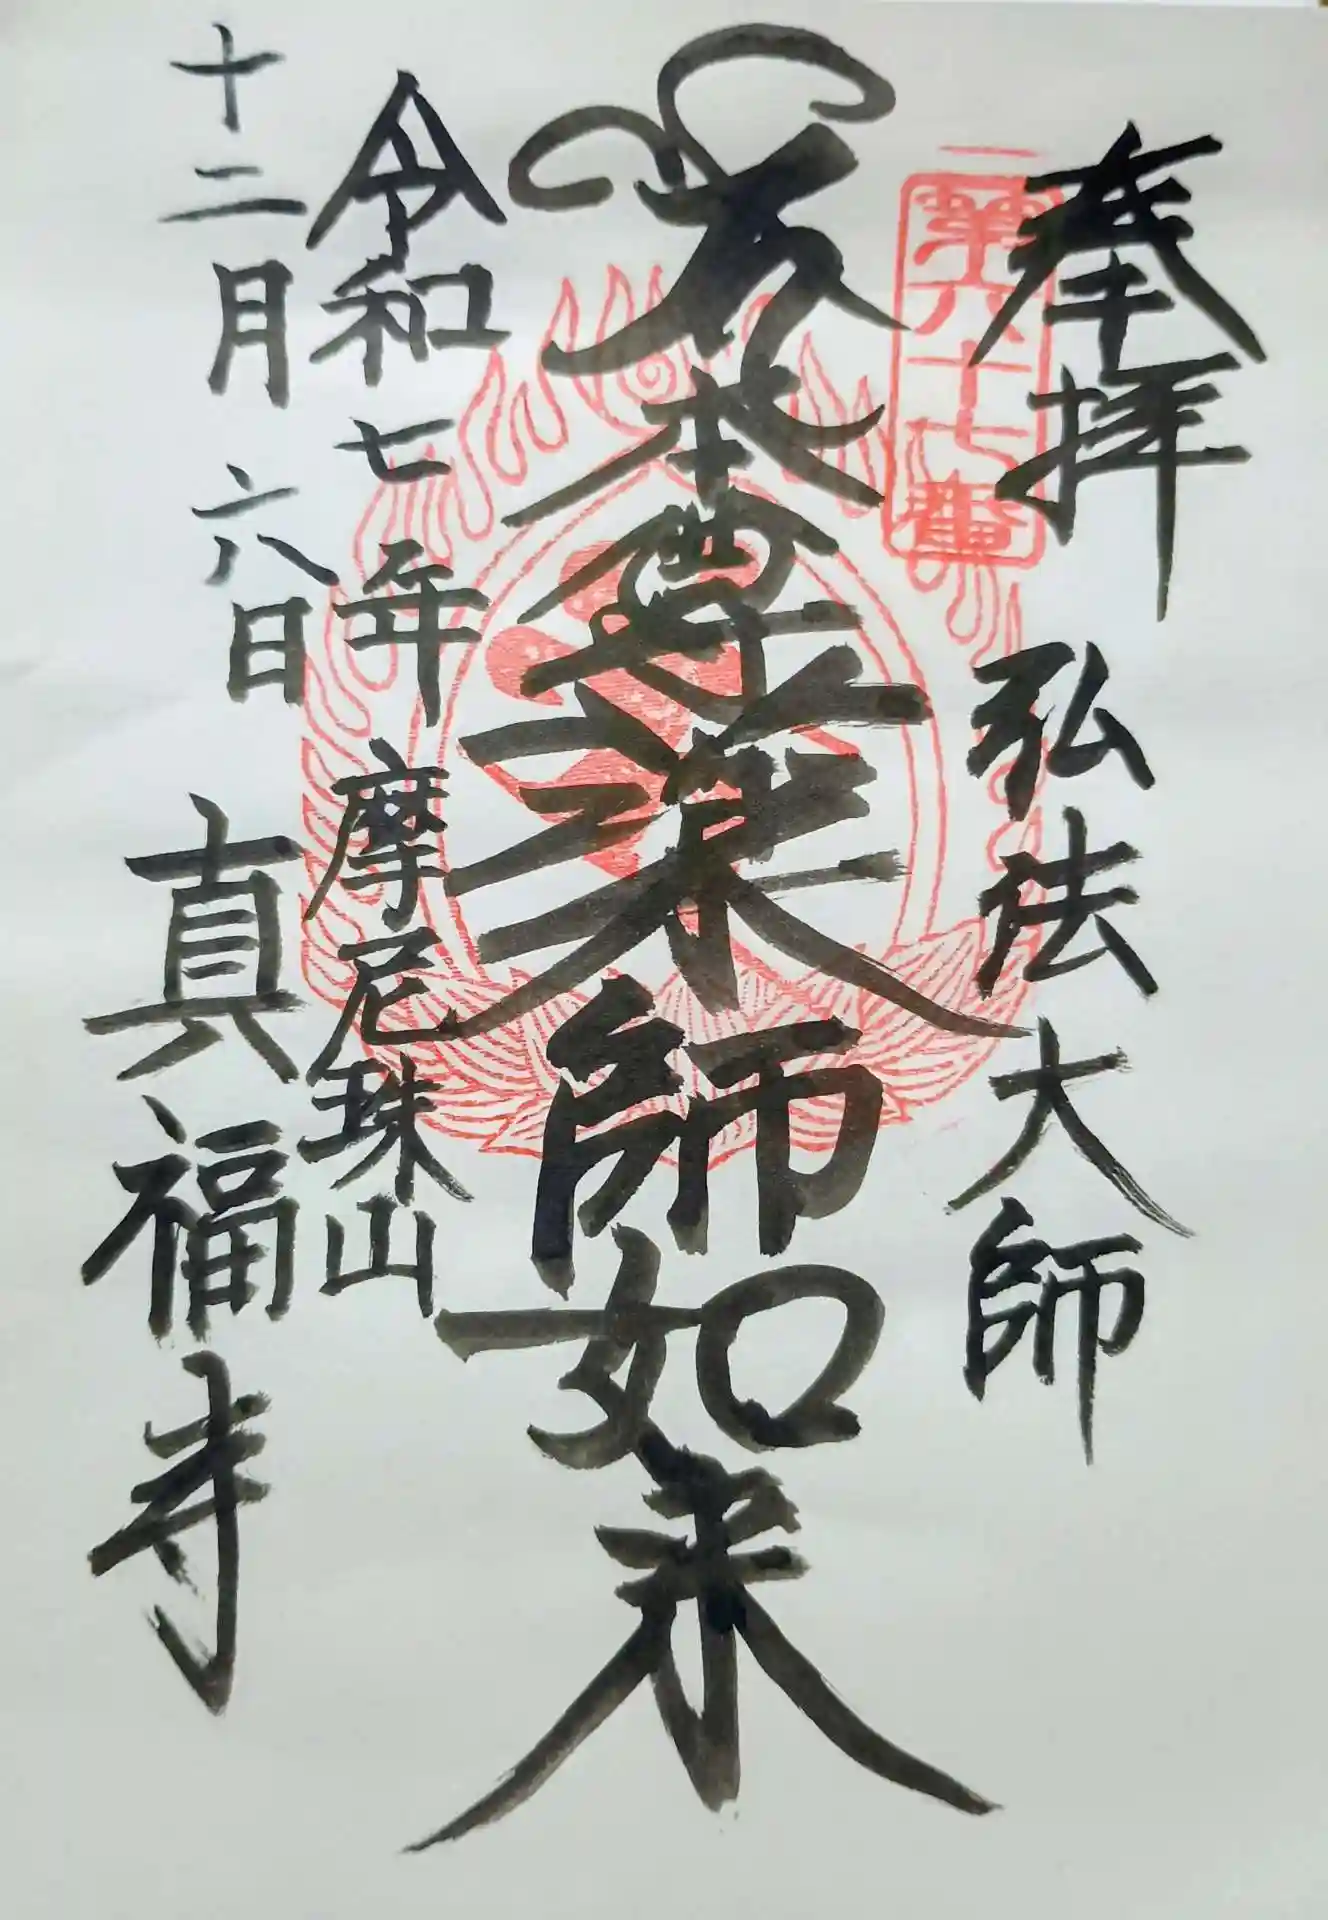 奉拝
弘法大師
第六十七番
本尊薬師如来
令和七年
摩尼珠山
十二月六日
真福寺